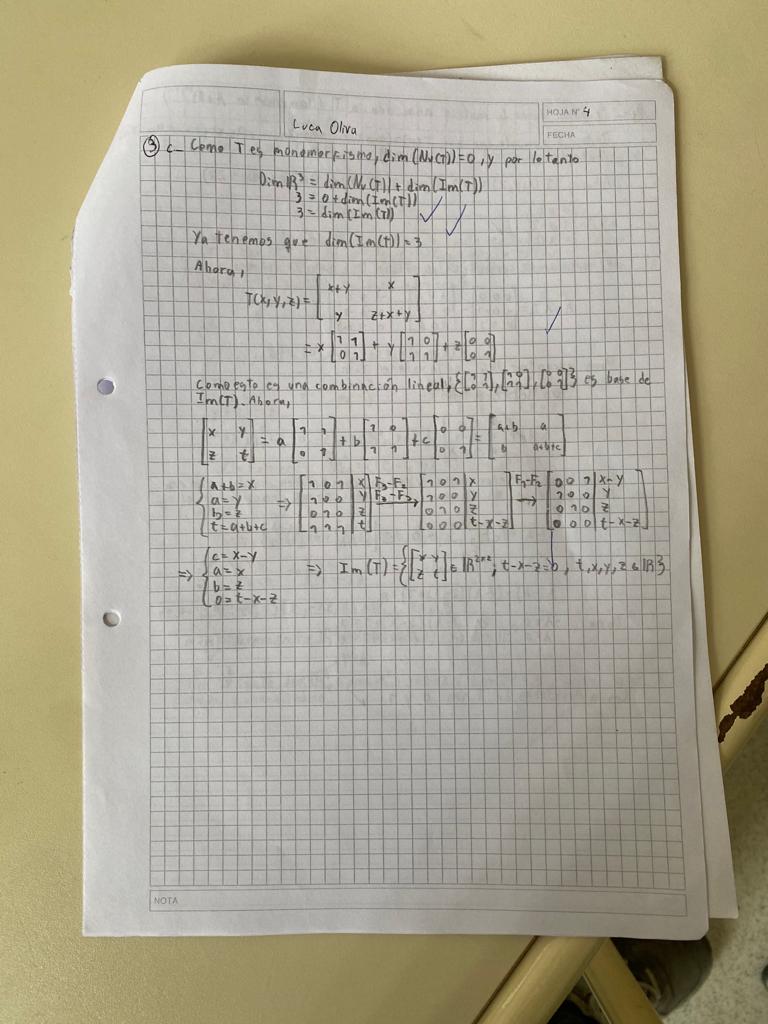 HOJA N° 4
Luca Oliva
FECHA
③ c_ Como T es monomorfismo, dim(Nu(T))=0, y por lo tanto
Dim ℝ³ = dim(Nu(T)) + dim(Im(T))
3 = 0 + dim(Im(T))
3 = dim(Im(T))
Ya tenemos que dim(Im(t))=3
Ahora,
T(x,y,z) = [x+y x; y z+x+y]
= x[1 1; 0 1] + y[1 0; 1 1] + z[0 0; 0 1]
Como esto es una combinación lineal, {[1 1; 0 1], [1 0; 1 1], [0 0; 0 1]} es base de
Im(T). Ahora,
[x y; z t] = a[1 1; 0 1] + b[1 0; 1 1] + c[0 0; 0 1] = [a+b a; b a+b+c]
{a+b=x; a=y; b=z; t=a+b+c ⇒ [1 0 1|x; 1 0 0|y; 0 1 0|z; 1 1 1|t] F₃-F₂ F₃-F₃ → [1 0 1|x; 1 0 0|y; 0 1 0|z; 0 0 0|t-x-z] F₁-F₂ → [0 0 1|x-y; 1 0 0|y; 0 1 0|z; 0 0 0|t-x-z]
⇒ {c=x-y; a=x; b=z; 0=t-x-z ⇒ Im(T) = {[x y; z t] ∈ ℝ²ˣ²; t-x-z=0, t,x,y,z ∈ ℝ}
NOTA